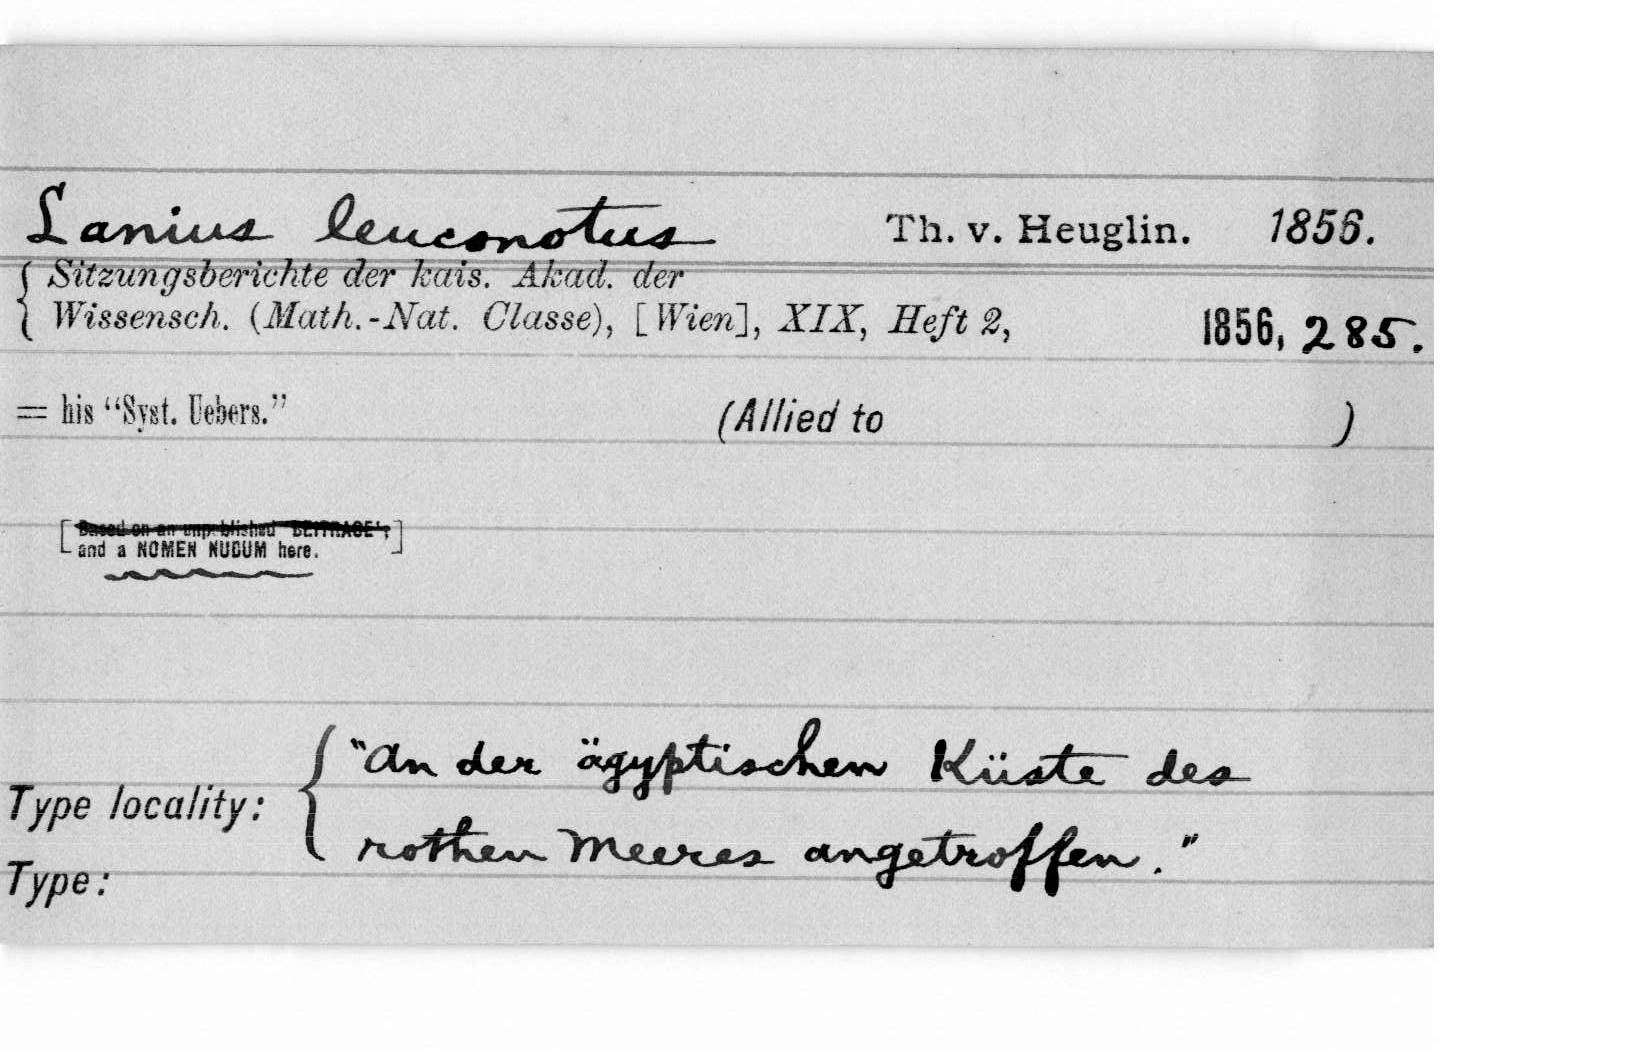 Lanius leuconotus Th. v. Heuglin. 1856.
Sitzungsberichte der kais. Akad. der
Wissensch. (Math.-Nat. Classe), [Wien], XIX, Heft 2, 1856, 285.
= his "Syst. Uebers." (Allied to )
[Based on an unpublished "BEITRAGE";
and a NOMEN NUDUM here.]
"An der ägyptischen Küste des
Type locality:
rothen Meeres angetroffen."
Type: